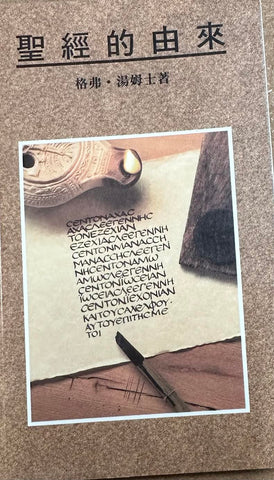 聖經的由來
格弗·湯姆士著
CENTONAXAC
AXACΔEEΓENNHC
TONEZEXIAN
EZEXIACΔEEΓENNH
CENTONMANACCH
MANACCHCΔEEΓEN
NHCENTONAMω
AMωCΔEEΓENNH
CENTONIωCEIAN
IωCEIACΔEEΓENNH
CENTONIEXONIAN
KAITOYCAΔEΛΦOY·
AYTOYEΠITHCME
TOI